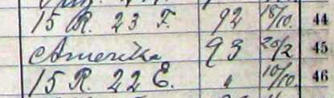 15 R. 23 F. 92 15/10. 44
Amerika 93 20/2 45
15 R. 22 E. " 10/10. 46